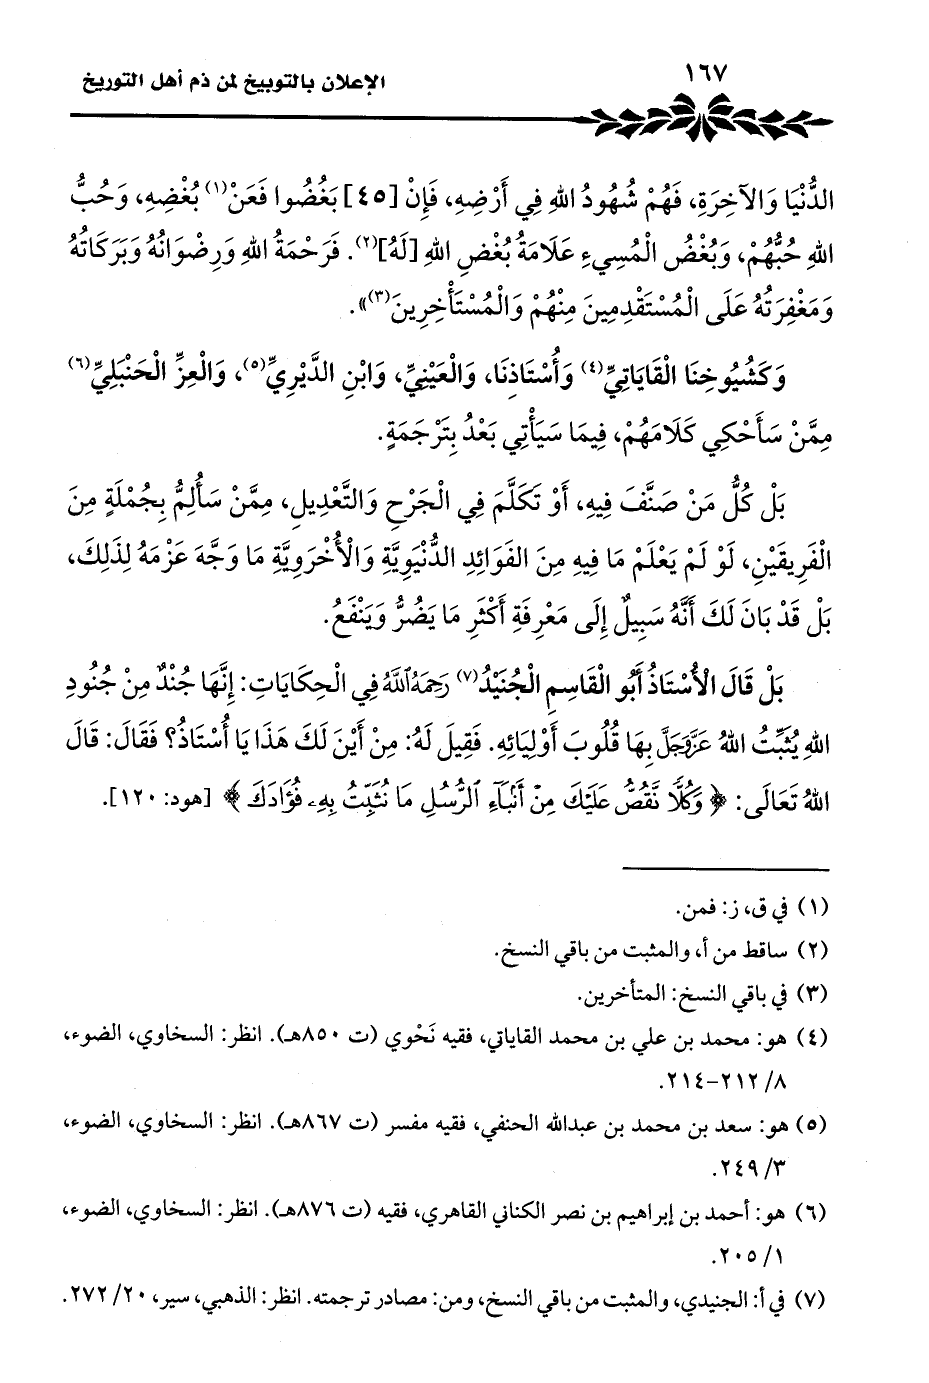 ١٦٧
الإعلان بالتوبيخ لمن ذم أهل التوريخ
الدُّنْيَا وَالآخِرَةِ، فَهُمْ شُهُودُ اللهِ فِي أَرْضِهِ، فَإِنْ [٤٥] بَغُضُوا فَعَنْ(١) بُغْضِهِ، وَحُبُّ
اللهِ حُبُّهُمْ، وَبُغْضُ الْمُسِيءِ عَلَامَةُ بُغْضِ اللهِ [لَهُ](٢). فَرَحْمَةُ اللهِ وَرِضْوَانُهُ وَبَرَكَاتُهُ
وَمَغْفِرَتُهُ عَلَى الْمُسْتَقْدِمِينَ مِنْهُمْ وَالْمُسْتَأْخِرِينَ(٣)».
وَكَشُيُوخِنَا الْقَايَاتِيِّ(٤) وَأُسْتَاذِنَا، وَالْعَيْنِيِّ، وَابْنِ الدَّيْرِيِّ(٥)، وَالْعِزِّ الْحَنْبَلِيِّ(٦)
مِمَّنْ سَأَحْكِي كَلَامَهُمْ، فِيمَا سَيَأْتِي بَعْدُ بِتَرْجَمَةٍ.
بَلْ كُلُّ مَنْ صَنَّفَ فِيهِ، أَوْ تَكَلَّمَ فِي الْجَرْحِ وَالتَّعْدِيلِ، مِمَّنْ سَأُلِمُّ بِجُمْلَةٍ مِنَ
الْفَرِيقَيْنِ، لَوْ لَمْ يَعْلَمْ مَا فِيهِ مِنَ الْفَوَائِدِ الدُّنْيَوِيَّةِ وَالْأُخْرَوِيَّةِ مَا وَجَّهَ عَزْمَهُ لِذَلِكَ،
بَلْ قَدْ بَانَ لَكَ أَنَّهُ سَبِيلٌ إِلَى مَعْرِفَةِ أَكْثَرِ مَا يَضُرُّ وَيَنْفَعُ.
بَلْ قَالَ الْأُسْتَاذُ أَبُو الْقَاسِمِ الْجُنَيْدُ(٧) رَحِمَهُ ٱللَّهُ فِي الْحِكَايَاتِ: إِنَّهَا جُنْدٌ مِنْ جُنُودِ
اللهِ يُثَبِّتُ اللهُ عَزَّوَجَلَّ بِهَا قُلُوبَ أَوْلِيَائِهِ. فَقِيلَ لَهُ: مِنْ أَيْنَ لَكَ هَذَا يَا أُسْتَاذُ؟ فَقَالَ: قَالَ
اللهُ تَعَالَى: ﴿ وَكُلًّا نَّقُصُّ عَلَيْكَ مِنْ أَنۢبَآءِ ٱلرُّسُلِ مَا نُثَبِّتُ بِهِۦ فُؤَادَكَ ﴾ [هود: ١٢٠].
(١) في ق، ز: فمن.
(٢) ساقط من أ، والمثبت من باقي النسخ.
(٣) في باقي النسخ: المتأخرين.
(٤) هو: محمد بن علي بن محمد القاياتي، فقيه نَحْوي (ت ٨٥٠هـ). انظر: السخاوي، الضوء،
٨/ ٢١٢-٢١٤.
(٥) هو: سعد بن محمد بن عبدالله الحنفي، فقيه مفسر (ت ٨٦٧هـ). انظر: السخاوي، الضوء،
٣/ ٢٤٩.
(٦) هو: أحمد بن إبراهيم بن نصر الكناني القاهري، فقيه (ت ٨٧٦هـ). انظر: السخاوي، الضوء،
١/ ٢٠٥.
(٧) في أ: الجنيدي، والمثبت من باقي النسخ، ومن: مصادر ترجمته. انظر: الذهبي، سير، ٢٠/ ٢٧٢.